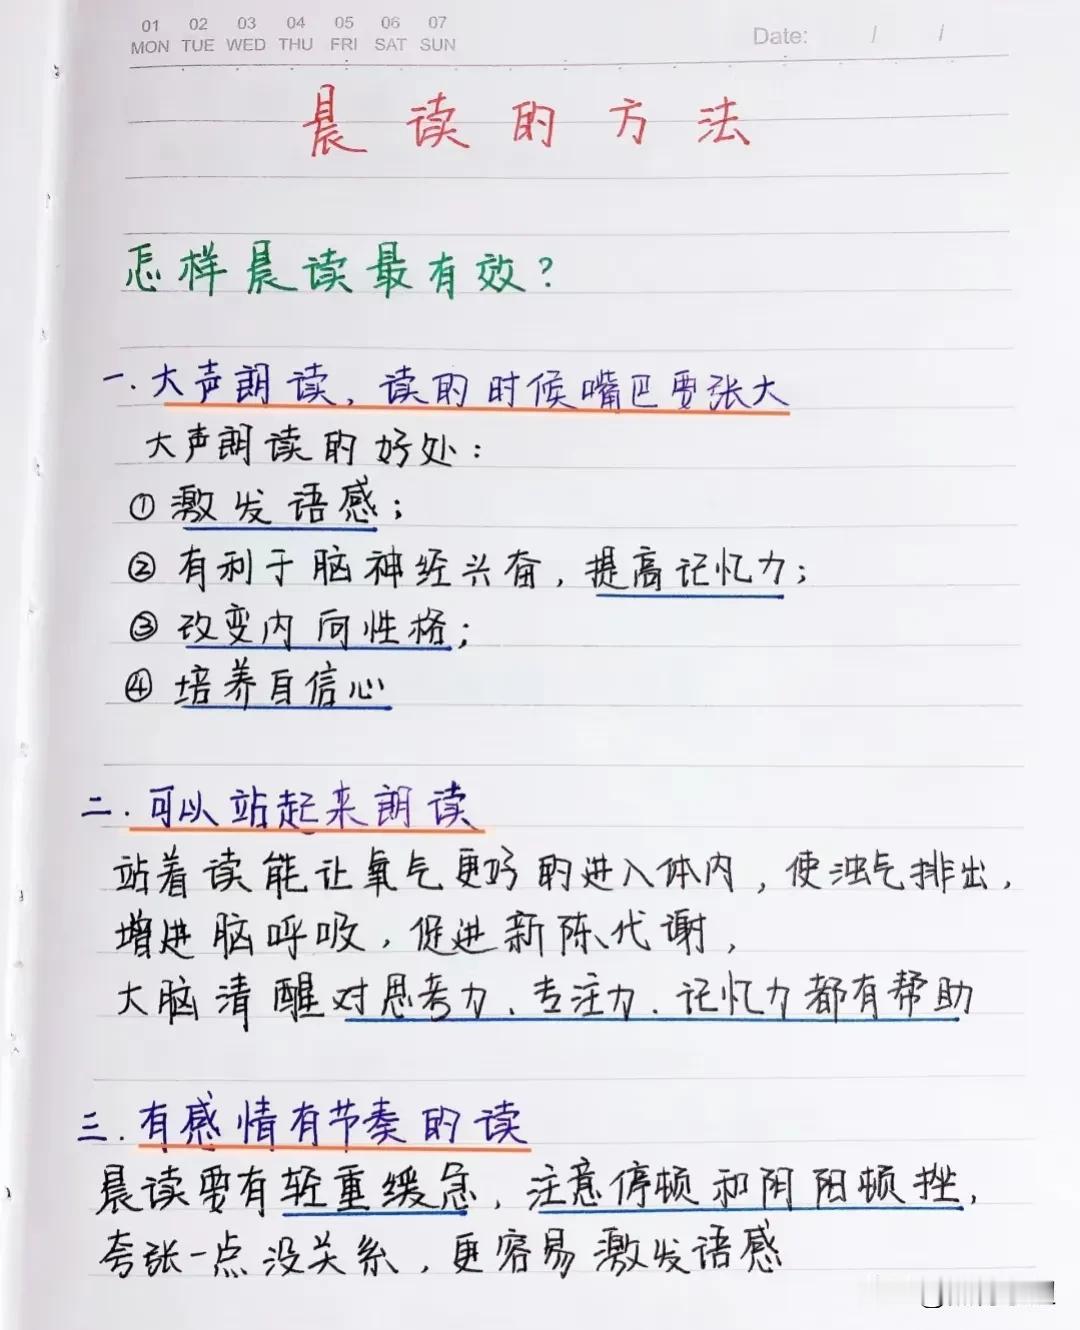 01 02 03 04 05 06 07
MON TUE WED THU FRI SAT SUN
Date: / /
晨读的方法
怎样晨读最有效?
一.大声朗读,读的时候嘴巴要张大
大声朗读的好处:
①激发语感;
②有利于脑神经兴奋,提高记忆力;
③改变内向性格;
④培养自信心
二.可以站起来朗读
站着读能让氧气更好的进入体内,使浊气排出,
增进脑呼吸,促进新陈代谢,
大脑清醒对思考力、专注力、记忆力都有帮助
三.有感情有节奏的读
晨读要有轻重缓急,注意停顿和阴阳顿挫,
夸张一点没关系,更容易激发语感